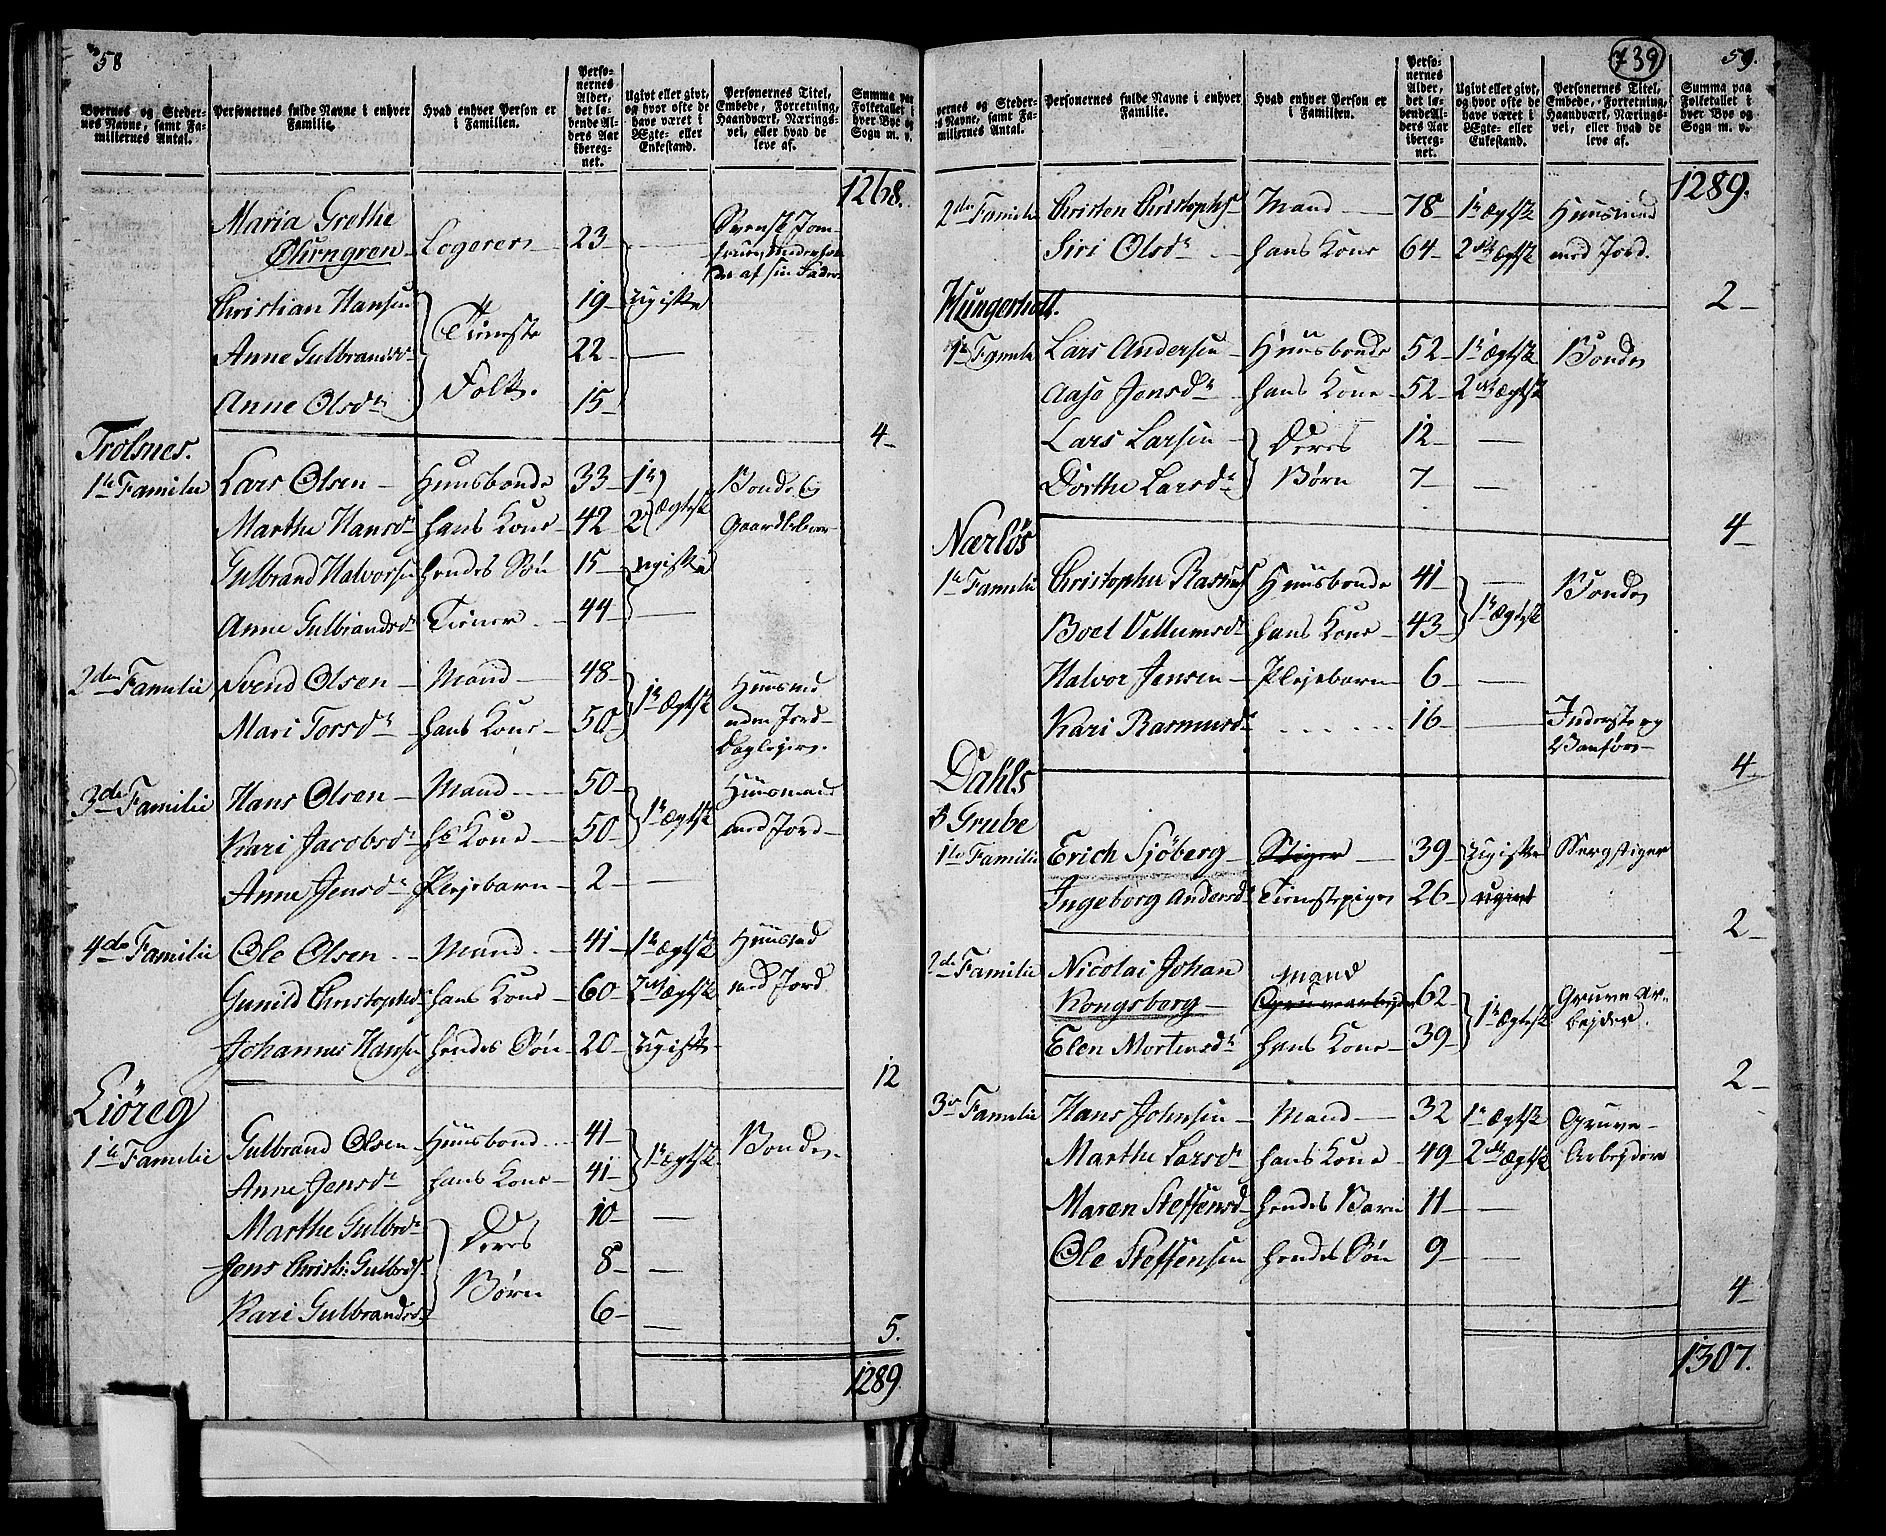 58
Byernes og Stedernes Navne, samt Familiernes Antal.
Personernes fulde Navne i enhver Familie.
Hvad enhver Person er i Familien.
Personernes Alder, det løbende Alders Aar iberegnet.
Ugivt eller givt, og hvor ofte de have været i Ægte- eller Enkestand.
Personernes Titel, Embede, Forretning, Haandværk, Næringsvei, eller hvad de leve af.
Summa paa Folketallet i hver Bye og Sogn m. v.
1268.
Maria Grethe
Öhrngren Logerer 23 —
Christian Hansen 19 ugifte
Tieneste
Anne Gulbrandsd 22 —
Folk.
Anne Olsdr 15
4
Trolsnes.
1te Familie Lars Olsen Huusbonde 33 1te Bonde og
Marthe Hansdr hans Kone 42 2 Ægtesk Gaardbeboer
Gulbrand Halvorsen hendes Søn 15 ugifte
Anne Gulbrandsdr Tiener 44 —
2den Familie Svend Olsen Mand 48 1te Ægtesk Huusmd
Mari Torsdr hans Kone 50 uden Jord
Daglejer.
3de Familie Hans Olsen Mand 50 1te Ægtsk Huusmand
Kari Jacobsdr hs Kone 50 med Jord
Anne Jensdr Plejebarn 2 —
4de Familie Ole Olsen Mand 41 1te Ægtsk Huusmd
Gunild Christophdr hans Kone 60 2det Ægtsk med Jord
Johannes Hansen hendes Søn 20 Ugift
12
Liöreg
1te Familie Gulbrand Olsen Huusbond 41 1te Ægtsk Bonde
Anne Jensdr hans Kone 41
Marthe Gulbrdr 10 —
Deres
Jens Christi: Gulbrds 8 —
Børn
Kari Gulbrandsdr 6 —
5.
1289
739
59.
Byernes og Stedernes Navne, samt Familiernes Antal.
Personernes fulde Navne i enhver Familie.
Hvad enhver Person er i Familien.
Personernes Alder, det løbende Alders Aar iberegnet.
Ugivt eller givt, og hvor ofte de have været i Ægte- eller Enkestand.
Personernes Titel, Embede, Forretning, Haandværk, Næringsvei, eller hvad de leve af.
Summa paa Folketallet i hver Bye og Sogn m. v.
1289.
2den Familie Christen Christophs Mand 78 1te Ægtsk Huusmd
Siri Olsdr hans Kone 64 2det Ægtsk med Jord
2
Hungerholt.
1te Familie Lars Andersen Huusbonde 52 1te Ægtsk Bonde
Aase Jensdr hans Kone 52 2det Ægtsk
Lars Larsen Deres 12 —
Dorthe Larsdr Børn 7 —
4
Nærløs
1te Familie Christopher Rasmus Huusbonde 41 — Bonde
Boel Villumsdr hans Kone 43 1te Ægtesk
Halvor Jensen Plejebarn 6 —
Kari Rasmusdr 16 — Inderste og
4
Dahls
Grube
1te Familie Erich Sjöberg Stiger 39 Ugifte Bergstiger
Ingeborg Andersdr Tienestepige 26 ugivt
2
2de Familie Nicolai Johan Mand
Kongsberg Gruvearbejder 62 1te Ægtesk Gruve Ar-
Elen Mortensdr hans Kone 39 bejder.
2
3de Familie Hans Johnsen Mand 32 1te Ægtsk Gruve-
Marthe Larsdr hans Kone 49 2det Ægtsk Arbejder
Maren Steffensd hendes Barn 11 —
Ole Steffensen hendes Søn 9 —
4
1307.